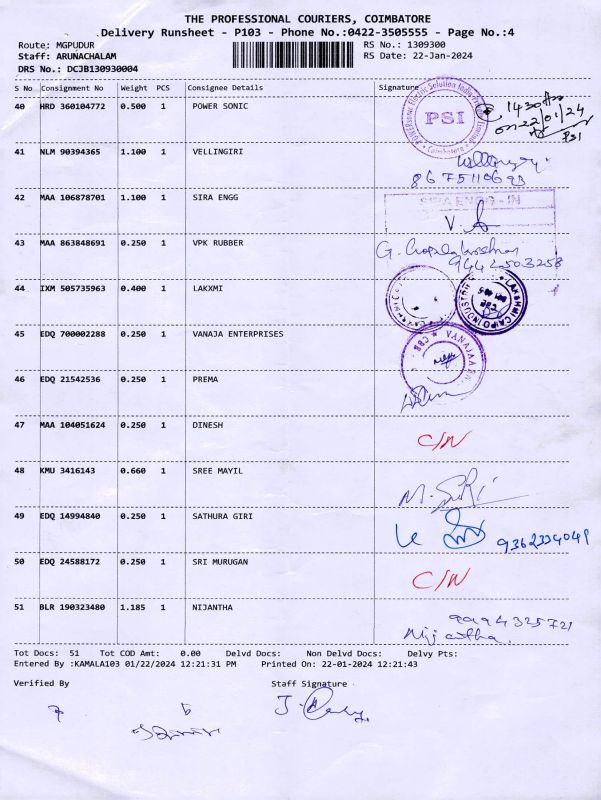 THE PROFESSIONAL COURIERS, COIMBATORE
Delivery Runsheet - P103 - Phone No.:0422-3505555 - Page No.:4
Route: MGPUDUR RS No.: 1309300
Staff: ARUNACHALAM RS Date: 22-Jan-2024
DRS No.: DCJB130930004
S No Consignment No Weight PCS Consignee Details Signature
40 HRD 360104772 0.500 1 POWER SONIC
PSI
Coimbatore
1430
on 22/01/24
PSI
41 NLM 90394365 1.100 1 VELLINGIRI
42 MAA 106878701 1.100 1 SIRA ENGG
43 MAA 863848691 0.250 1 VPK RUBBER G. Gopalakrishnan
9442503258
44 IXM 505735963 0.400 1 LAKXMI
45 EDQ 700002288 0.250 1 VANAJA ENTERPRISES
46 EDQ 21542536 0.250 1 PREMA
47 MAA 104051624 0.250 1 DINESH C/N
48 KMU 3416143 0.660 1 SREE MAYIL
49 EDQ 14994840 0.250 1 SATHURA GIRI 9362334049
50 EDQ 24588172 0.250 1 SRI MURUGAN C/N
51 BLR 190323480 1.185 1 NIJANTHA 9994325721
Nijantha.
Tot Docs: 51 Tot COD Amt: 0.00 Delvd Docs: Non Delvd Docs: Delvy Pts:
Entered By :KAMALA103 01/22/2024 12:21:31 PM Printed On: 22-01-2024 12:21:43
Verified By Staff Signature